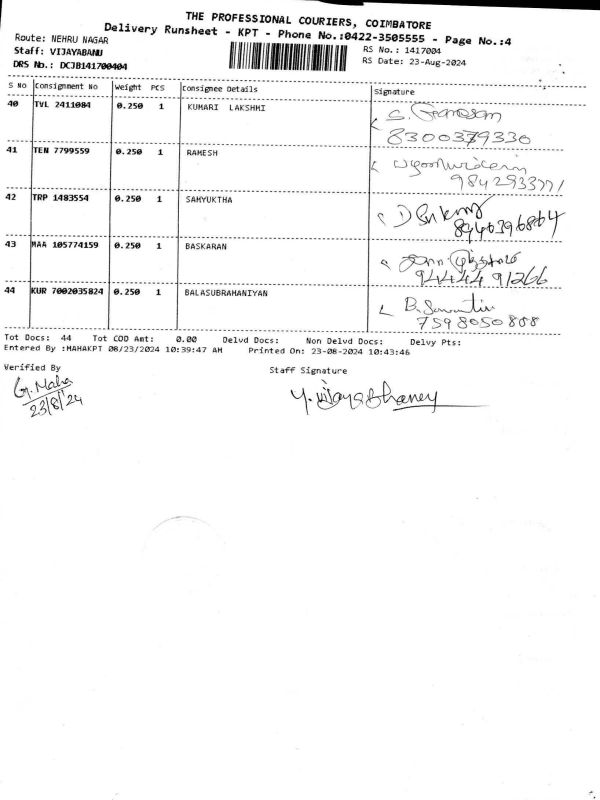 THE PROFESSIONAL COURIERS, COIMBATORE
Delivery Runsheet - KPT - Phone No.:0422-3505555 - Page No.:4
Route: NEHRU NAGAR
RS No.: 1417004
Staff: VIJAYABANU
RS Date: 23-Aug-2024
DRS No.: DCJB141700404
S No Consignment No Weight PCS Consignee Details Signature
40 TVL 2411084 0.250 1 KUMARI LAKSHMI
8300379330
41 TEN 7799559 0.250 1 RAMESH
9842933771
42 TRP 1483554 0.250 1 SAHYUKTHA
43 MAA 105774159 0.250 1 BASKARAN
94444 91266
44 KUR 7002035824 0.250 1 BALASUBRAHANIYAN
7598050808
Tot Docs: 44 Tot COD Amt: 0.00 Delvd Docs: Non Delvd Docs: Delvy Pts:
Entered By :MAHAKPT 08/23/2024 10:39:47 AM Printed On: 23-08-2024 10:43:46
Verified By Staff Signature
G. Maha
23/8/24